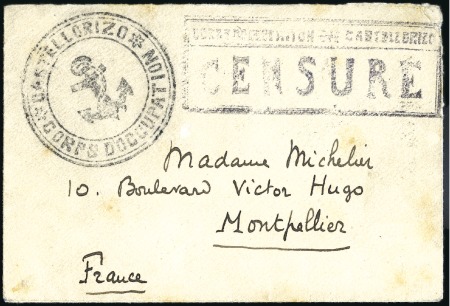 CASTELLORIZO
CORPS D'OCCUPATION
CORPS D'OCCUPATION DE CASTELLORIZO
CENSURE
Madame Michelier
10. Boulevard Victor Hugo
Montpellier
France